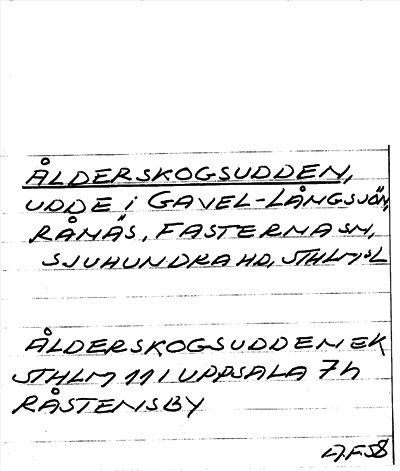 ÅLDERSKOGSUDDEN,
UDDE i GAVEL-LÅNGSJÖN,
RÅNÄS, FASTERNA SN,
SJUHUNDRA HD, STHLMSL
ÅLDERSKOGSUDDEN EK
STHLM 11 I UPPSALA 7h
RÅSTENSBY
AF58